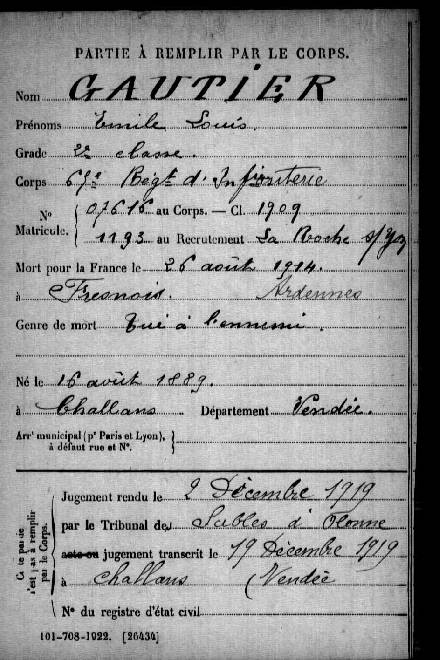 PARTIE À REMPLIR PAR LE CORPS.
Nom GAUTIER
Prénoms Emile Louis.
Grade 2e classe.
Corps Régt d'Infanterie
Nº Matricule. 07616 au Corps. — Cl. 1909
1193 au Recrutement La Roche s/Yon
Mort pour la France le 26 août 1914.
à Fresnois. Ardennes
Genre de mort Tué à l'ennemi.
Né le 16 août 1889.
à Challans Département Vendée.
Arrt municipal (pr Paris et Lyon),
à défaut rue et Nº.
Cette partie
n'est pas à remplir
par le Corps.
Jugement rendu le 2 Décembre 1919
par le Tribunal des Sables d'Olonne
acte ou jugement transcrit le 19 Décembre 1919
à Challans (Vendée
Nº du registre d'état civil
101-708-1922. [26434]